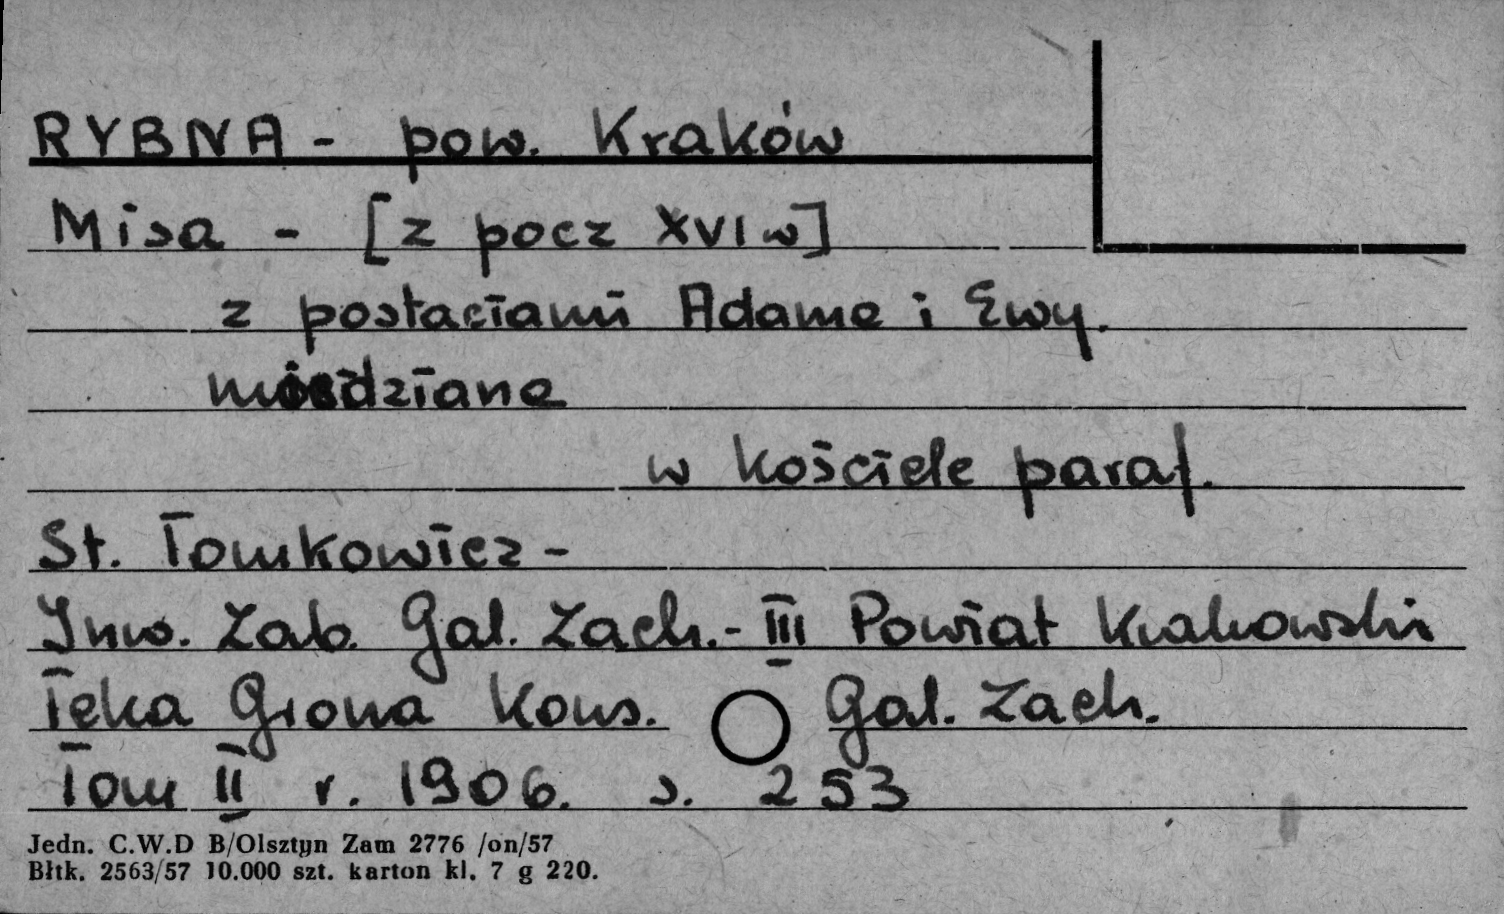 RYBNA - pow. Kraków
Misa - [z pocz XVI w]
z postaciami Adama i Ewy.
miedziana
w kościele paraf.
St. Tomkowicz -
Inw. Zab. Gal. Zach. - III Powiat Krakowski
Teka Grona Kons. Gal. Zach.
Tom II r. 1906. s. 253
Jedn. C.W.D B/Olsztyn Zam 2776 /on/57
Błtk. 2563/57 10.000 szt. karton kl. 7 g 220.